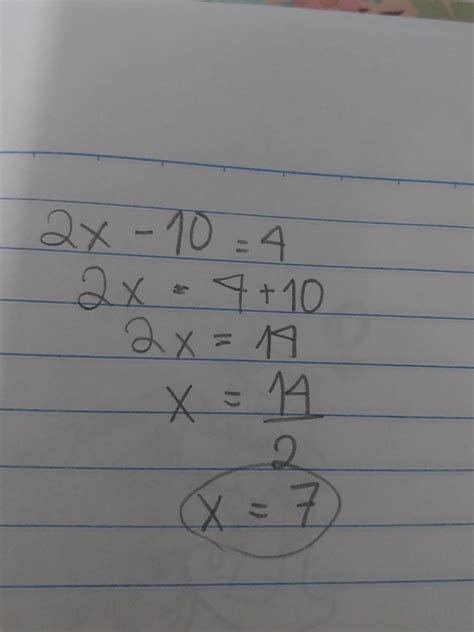 2x - 10 = 4
2x = 4 + 10
2x = 14
x = 14/2
x = 7